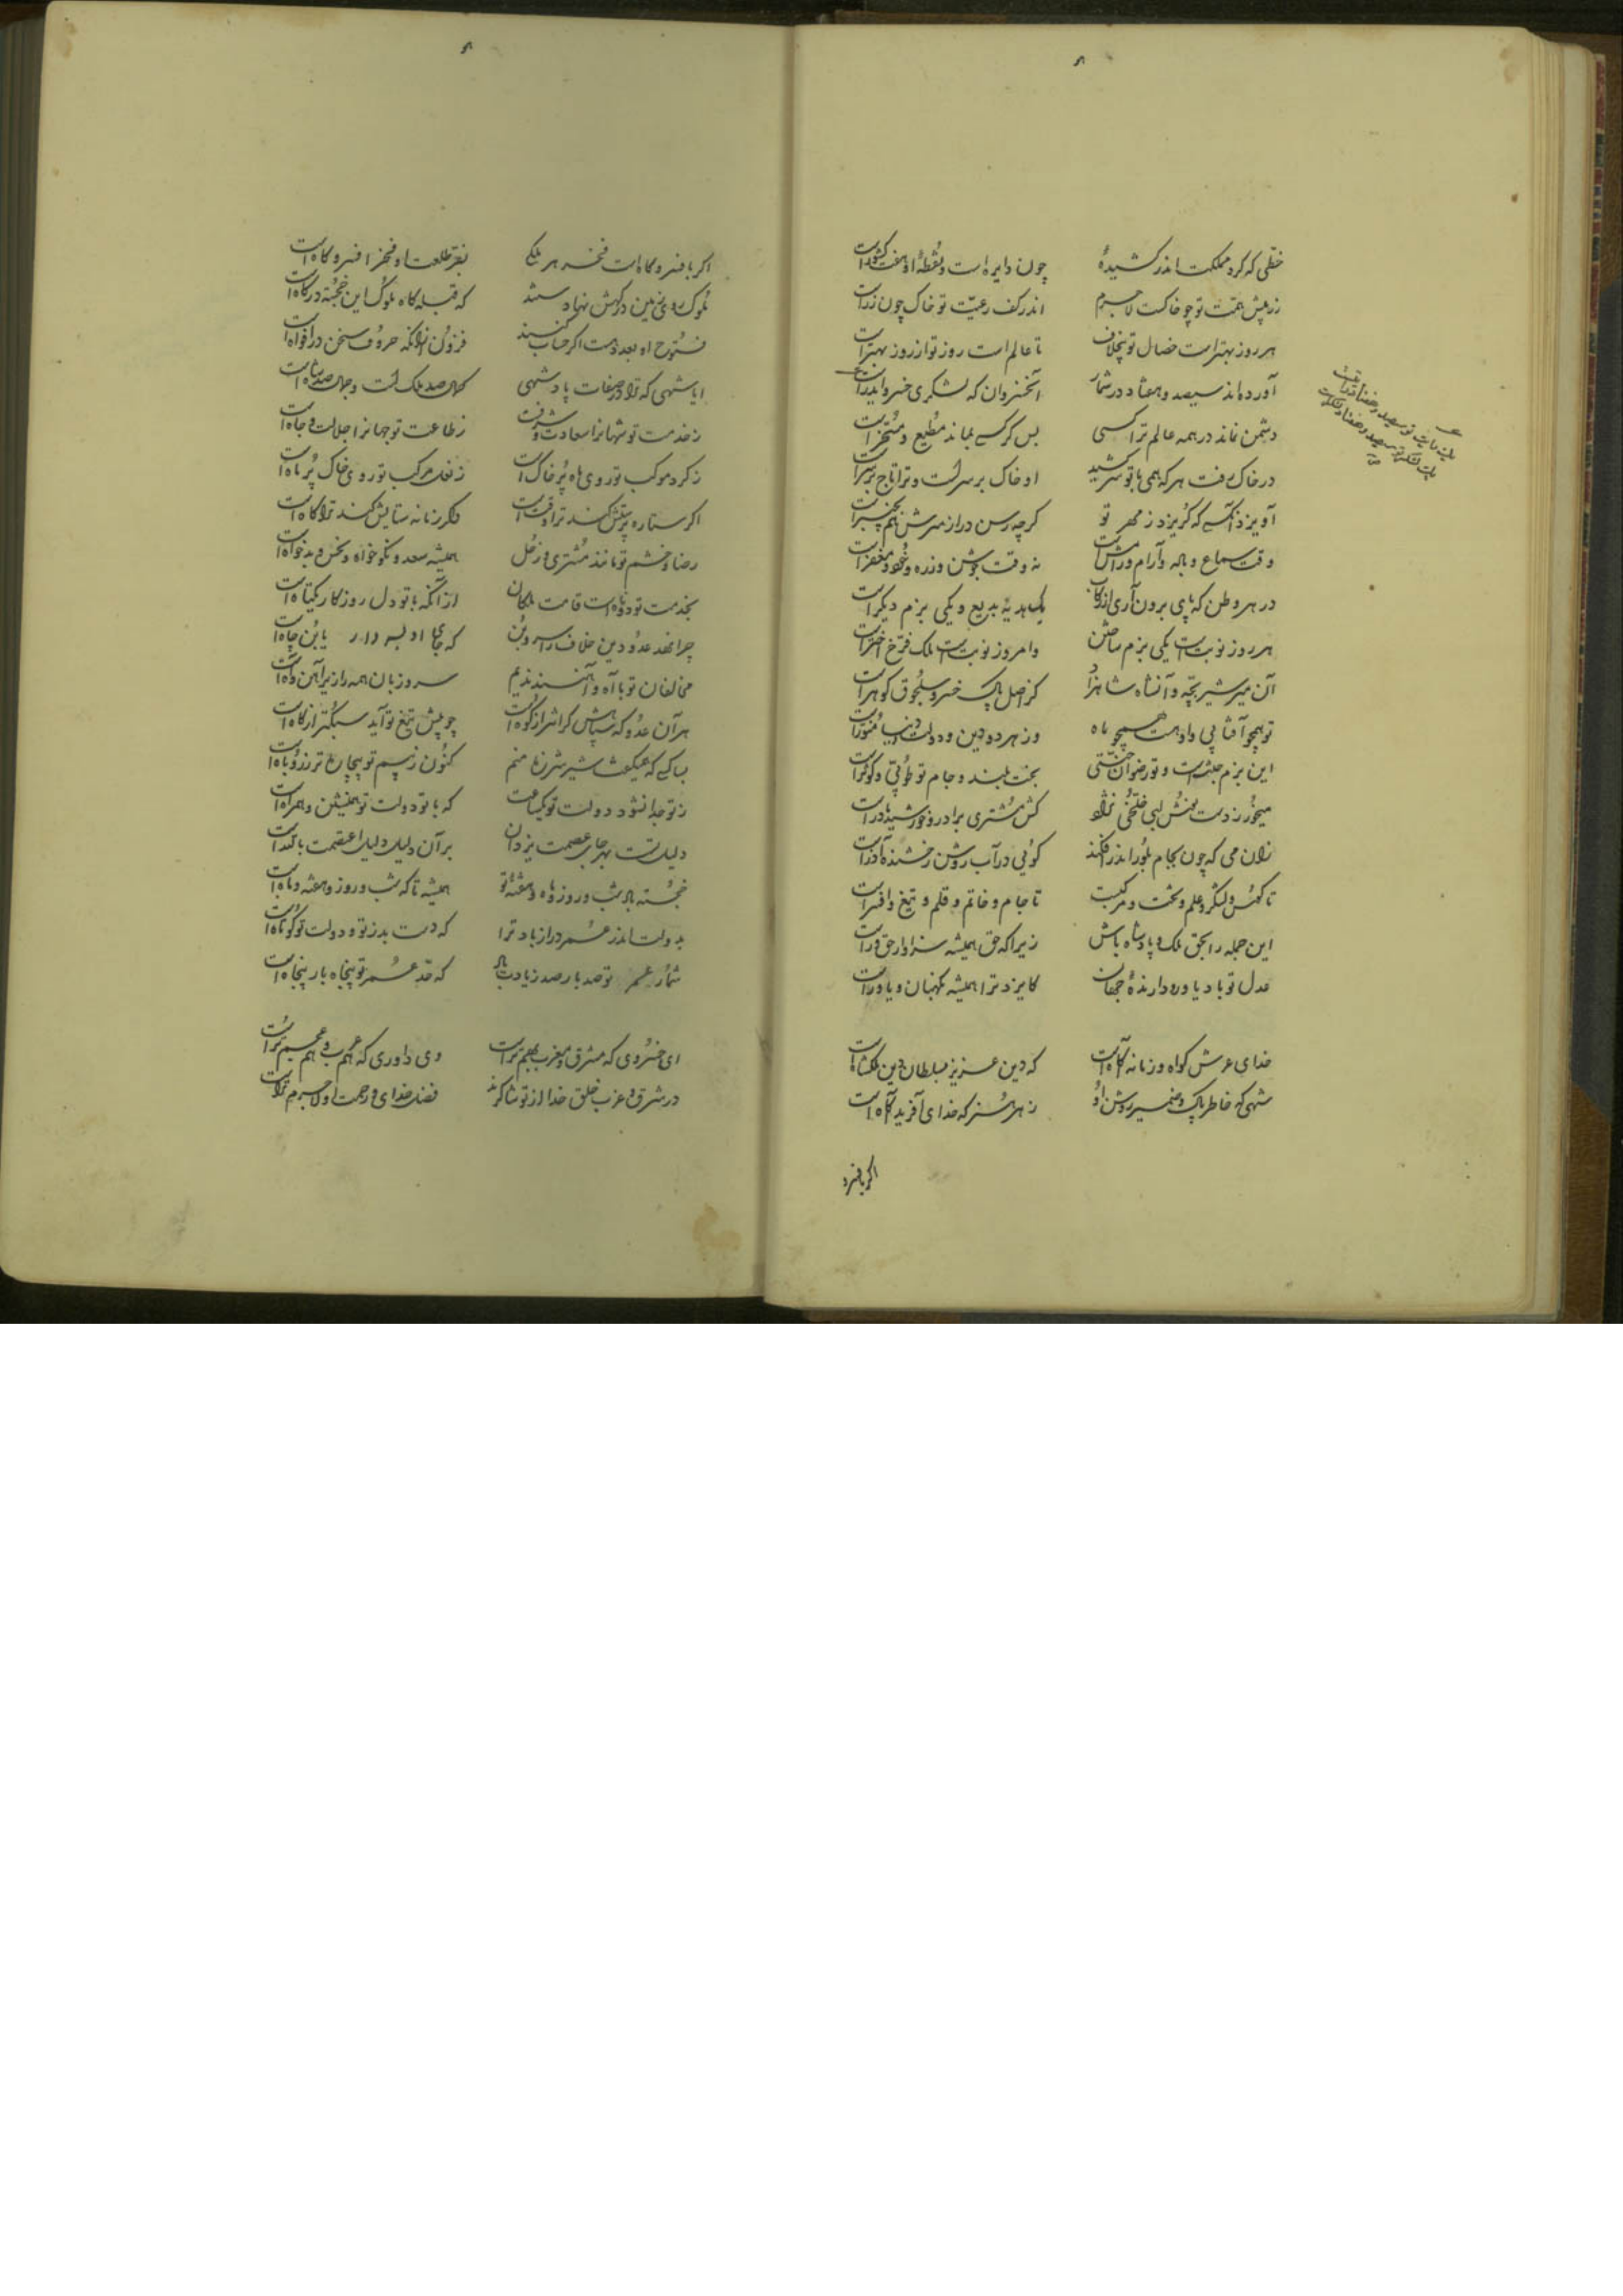 ۸
خطی که گرد مملکت اندر کشیدهٔ چون دایره است و نقطهٔ او هفت کشور است
زر پیش همت تو چو خاکست لاجرم اندر کف رعیت تو خاک چون زر است
هر روز بهتر است خصال تو بیخلاف تا عالم است روز تو از روز بهتر است
آورده‌اند سیصد و هفتاد در شمار آن خسروان که لشکری خسرو ایدر است
دشمن نماند در همه عالم ترا کسی بس کس بماند مطیع و مسخر است
در خاک رفت هر که همی با تو سر کشید او خاک بر سر است و ترا تاج بر سر است
آویزد آنکسی که گریزد ز مهر تو گرچه رسن دراز سرش هم بچنبر است
وقت سماع و باله و آرام و رامش است نه وقت جوشن و زره و خود و مغفر است
در هر وطن که پای برون آری از رکاب یک هدیهٔ بدیع و یکی بزم دیگر است
هر روز نوبت است یکی بزم ساختن و امروز نوبت است ملک فرخ اختر است
آن میر شیر بچه و آن شاه شاهزاد کز اصل پاک خسرو سلجوق گوهر است
تو همچو آفتابی و او هست همچو ماه وز هر دو دین و دولت و دنیا منور است
این بزم جنت است و تو رضوان جنتی بخت بلند و جام تو طوبی و کوثر است
میخور ز دست لبی خلخی نژاد کش مشتری برادر و خورشید مادر است
زان می که چون بجام بلور اندر افکند گوئی در آب روشن رخشنده آذر است
تا کوس و لشکر و علم و تخت و مرکبست تا جام و خاتم و قلم و تیغ و افسر است
این جمله را بحق ملک و پادشاه باش زیرا که حق همیشه سزاوار حق‌ور است
عدل تو باد یاور و دارندهٔ جهان کایزد ترا همیشه نگهبان و یاور است
خدای عرش گواه و زمانه آگاه است که دین عزیز بسلطان دین ملکشاه است
شهی که خاطر پاک و ضمیر روشن او ز هر هنر که خدای آفرید آگاه است
اگر بافسر و
۸
اگر بافسر و گاه است فخر هر ملکی بفر طلعت او فخر افسر و گاه است
ملوک روی زمین در گهش نهادستند که قبله‌گاه ملوک این خجسته درگاه است
فتوح او بعدد هست اگر حساب کنند فزون از آنکه حروف سخن در افواه است
ایا شهی که ترا در صفات پادشهی کمال صد ملک است و جمال صد شاه است
ز خدمت تو شهانرا سعادت و شرفست ز طاعت تو جهانرا جلالت و جاه است
ز گرد موکب تو روی ماه پر خاک است ز نعل مرکب تو روی خاک پر ماه است
اگر ستاره پرستش کند ترا وقت است وگر زمانه ستایش کند ترا گاه است
رضا و خشم تو مانند مشتری و زحل همیشه سعد و نکوخواه و نحس و بدخواه است
بخدمت تو دوتاه است قامت ملکان از آنکه با تو دل روزگار یکتاه است
چرا نهد عدو دین خلاف را سر و بن که جای او بسر دار یا بن چاه است
مخالفان تو با آه و آهنند ندیم سر و زبان همه را زیر آهن و آه است
هر آن عدو که سپاهش گرانتر از کوه است چو پیش تیغ تو آید سبکتر از کاه است
بسا کسی که همیگفت شیر شرزه منم کنون ز بیم تو بیجان‌تر ز روباه است
ز تو جدا نشود دولت تو یکساعت که با تو دولت تو همنشین و همراه است
دلیل تست بهر جای عصمت یزدان بر آن دلیل دلیل اعتصمت بالله است
خجسته باد شب و روز و ماه و هفتهٔ تو همیشه تا که شب و روز و هفته و ماه است
بدولت اندر عمر دراز باد ترا که دست بد ز تو و دولت تو کوتاه است
شمار عمر تو صد بار صد زیادت باد که حد عمر تو پنجاه بار پنجاه است
ای خسروی که مشرق و مغرب بهم تراست وی داوری که هم عرب و هم عجم تراست
در شرق و غرب خلق خدا از تو شاکرند فضل خدای و رحمت او لاجرم تراست